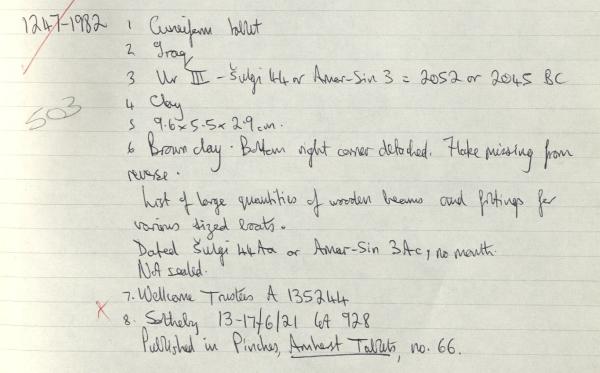 1247-1982 1 Cuneiform tablet
2 Iraq
3 Ur III - Šulgi 44 or Amar-Sin 3 = 2052 or 2045 BC
4 Clay
503
5 9.6 x 5.5 x 2.9 cm.
6 Brown clay. Bottom right corner detached. Flake missing from
reverse.
List of large quantities of wooden beams and fittings for
various sized boats.
Dated Šulgi 44Aa or Amar-Sin 3Ac, no month.
Not sealed.
7. Wellcome Trustees A 135244
x 8. Sotheby 13-17/6/21 Lot 928
Published in Pinches, Amherst Tablets, no. 66.